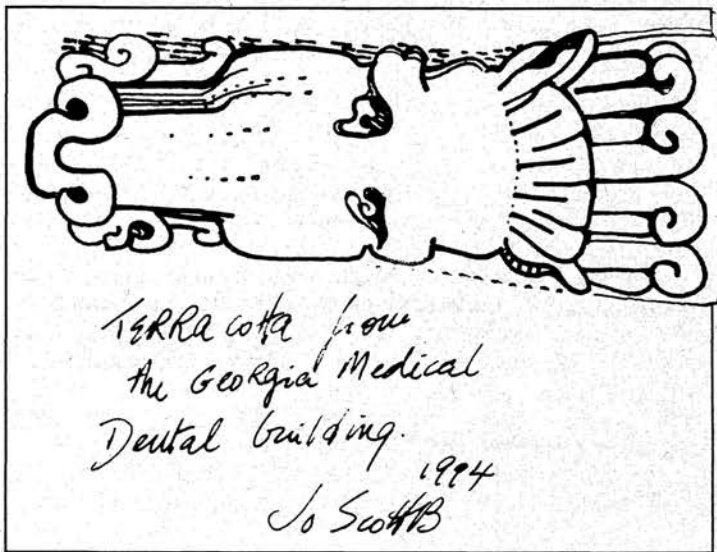 TERRA cotta from
the Georgia Medical
Dental building.
1994
Jo ScottB